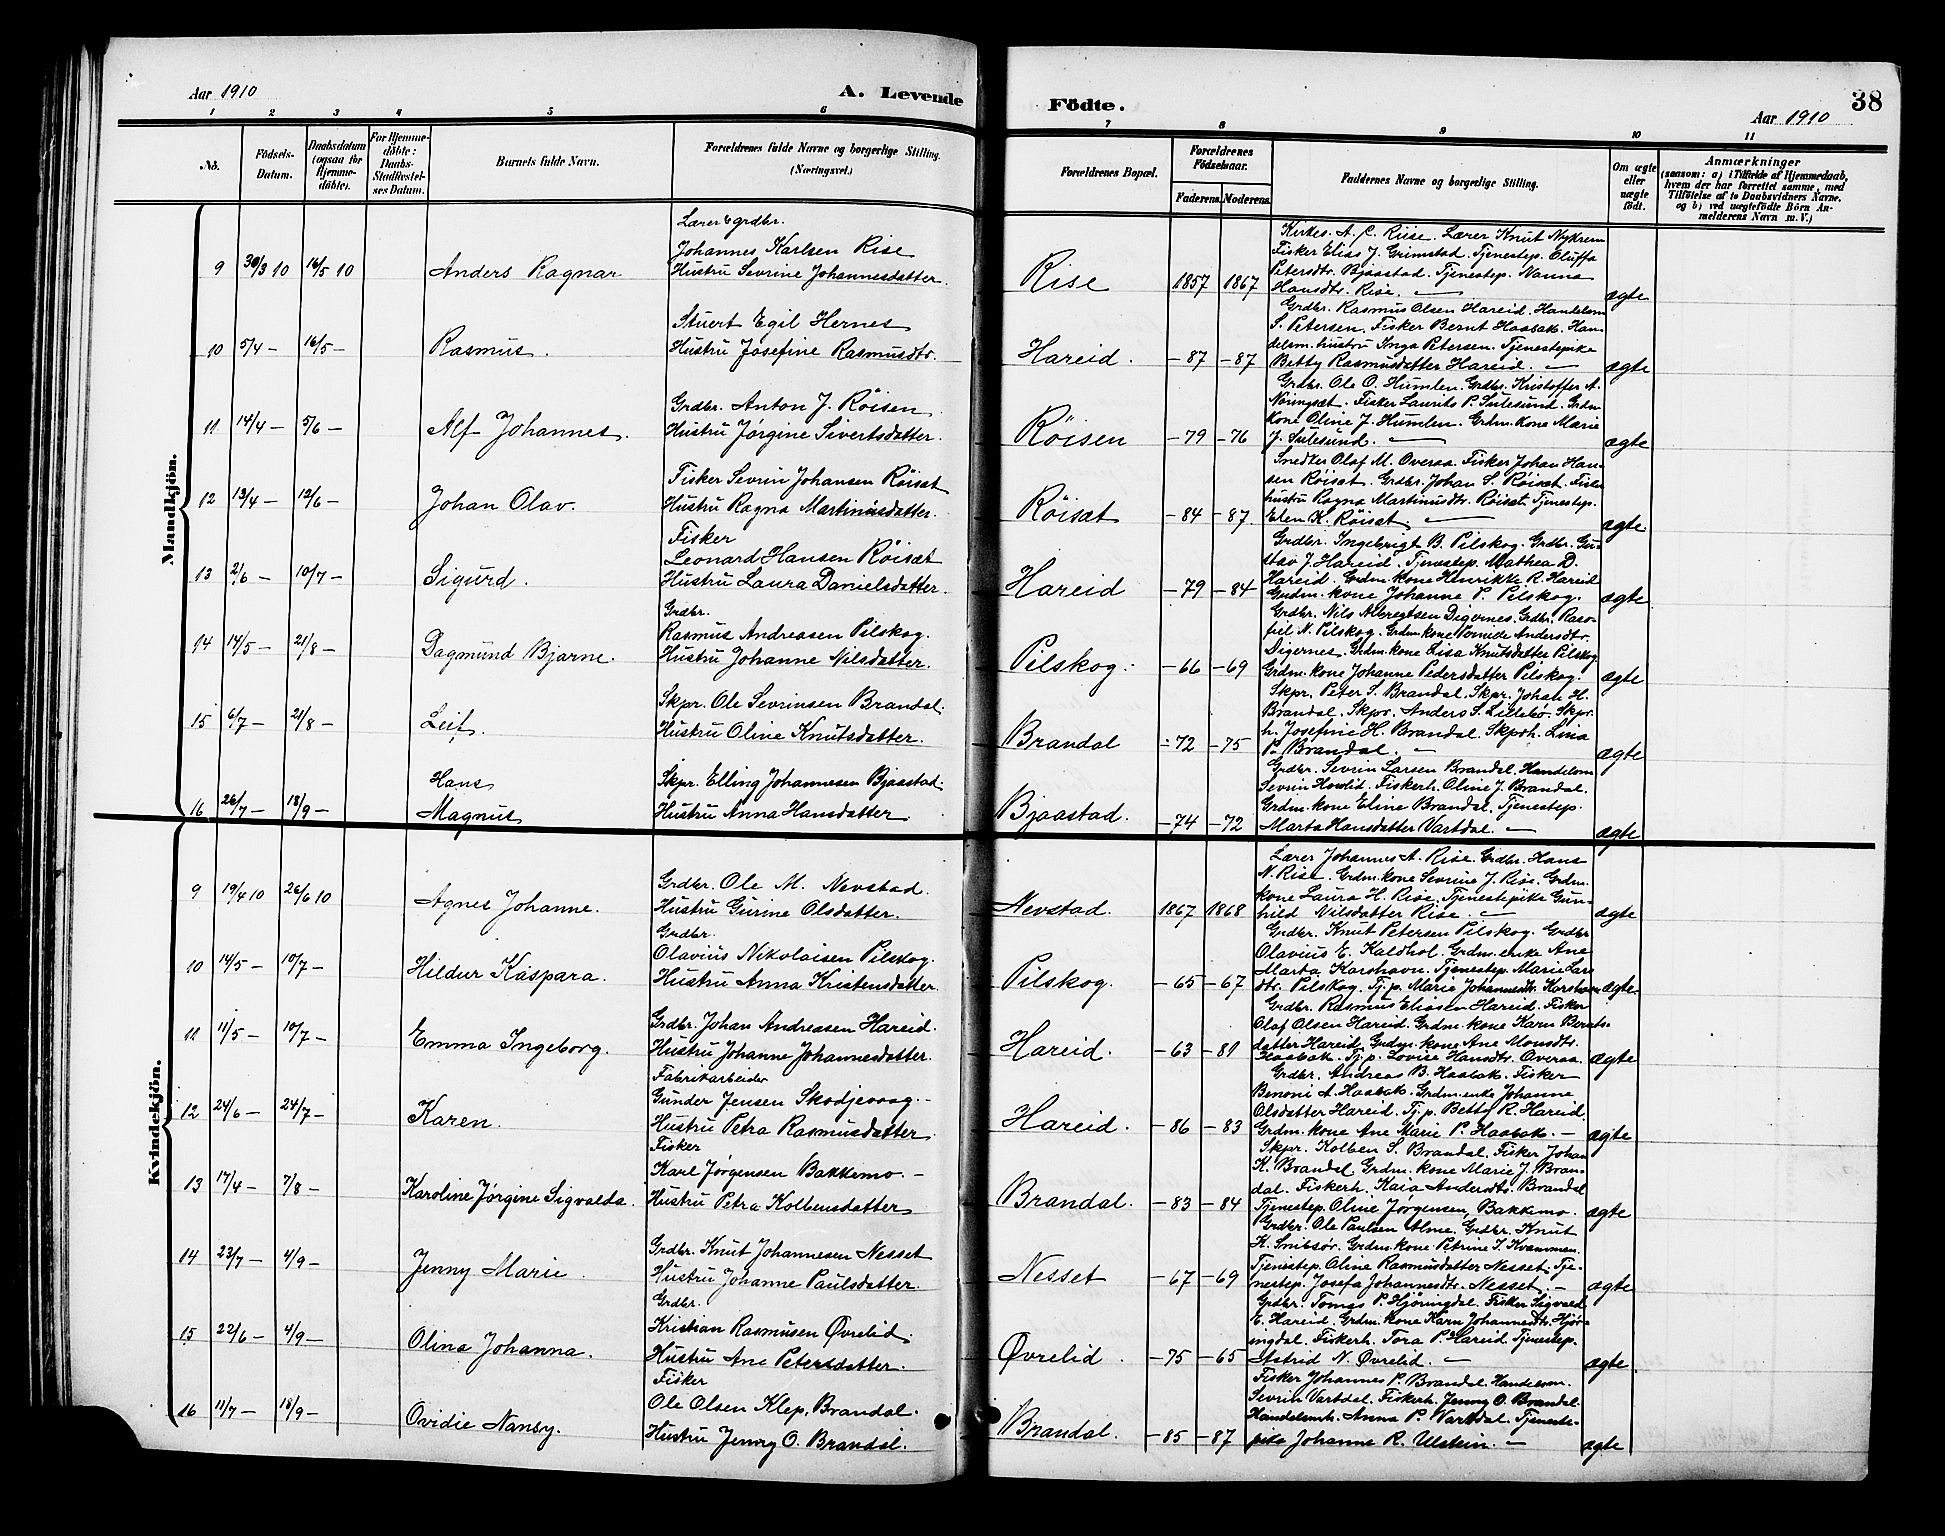 Aar 1910
A. Levende
Födte.
38
Aar 1910
1 2 3 4 5 6 7 8 9 10 11
No.
Födsels-Datum.
Daabsdatum (ogsaa for Hjemmedöbte).
For Hjemmedöbte: Daabs-Stadfæstelses Datum.
Barnets fulde Navn.
Forældrenes fulde Navne og borgerlige Stilling. (Næringsvei.)
Forældrenes Bopæl.
Forældrenes Födselsaar.
Faderens. Moderens.
Faddernes Navne og borgerlige Stilling.
Om ægte eller uægte født.
Anmærkninger
(saasom: a) i Tilfælde af Hjemmedaab, hvem der har forrettet samme, med Tilföielse af to Daabsvidners Navne. og b) ved uægtefödte Börn Anmelderens Navn m. V.)
Mandkjön.
Lærer & grdbr.
9 30/3 10 16/5 10 Anders Ragnar
Johannes Karlsen Rise
Hustru Sevrine Johannesdatter.
Rise 1857 1867
Kirkes. A. C. Riise. Lærer Knut Nykrem
Fisker Elias J. Grimstad. Tjenestep. Oluffa
Petersdtr. Bjaastad. Tjenestep. Nanna
Hansdtr. Rise. —
ægte
10 5/4 — 16/5 — Rasmus.
Stuert Egil Hernes
Hustru Josefine Rasmusdtr.
Hareid. — 87 — 87
Grdbr. Rasmus Olsen Hareid. Handelsm
S. Petersen. Fisker Bernt Haabak. Han-
delsm. hustru Inga Petersen. Tjenestepike
Betty Rasmusdatter Hareid. —
ægte
11 14/4 — 5/6 — Alf Johannes.
Grdbr. Anton J. Röisen.
Hustru Jørgine Sivertsdatter.
Röisen — 79 — 76
Grdbr. Ole O. Humlen. Grdbr. Kristoffer A.
Nöringsæt. Fisker Laurits P. Sulesund. Grdm
kone Oline J. Humlen. Grdm. kone Marie
J. Sulesund. —
ægte
12 13/4 — 12/6 — Johan Olav.
Fisker Sevrin Johansen Röisæt
Hustru Ragna Martinusdatter.
Röisæt — 84 — 87.
Snedker Olaf M. Overaa. Fisker Johan Han-
sen Röisæt. Grdbr. Johan S. Röisæt. Fisker
hustru Ragna Martinusdtr. Röisæt. Tjenestep.
Elen K. Röisæt. —
ægte.
13 2/6 — 10/7 — Sigurd.
Fisker
Leonard Hansen Röisæt
Hustru Laura Danielsdatter.
Hareid — 79 — 84
Grdbr. Ingebrigt B. Pilskog. Grdbr. Gu-
stav J. Hareid. Tjenestep. Mathea D.
Hareid. Grdm. kone Henrikke R. Hareid
Grdm. kone Johanne P. Pilskog.
ægte
14 14/5 — 21/8 — Dagmund Bjarne.
Grdbr.
Rasmus Andreasen Pilskog.
Hustru Johanne Nilsdatter.
Pilskog. — 66 — 69
Grdbr. Nils Albregtsen Digernes. Grdbr. Raso-
fiel N. Pilskog. Grdm. kone Pernille Andersdtr.
Digernes. Grdm. kone Lisa Knutsdatter Pilskog
Grdm. kone Johanne Pedersdatter Pilskog.
ægte
15 6/7 — 21/8 — Leif.
Skpr. Ole Sevrinsen Brandal.
Hustru Oline Knutsdatter.
Brandal — 72 — 75
Skpr. Peter S. Brandal. Skpr. Johan H.
Brandal. Skpr. Anders S. Lillebø. Skpr.
h. Josefine H. Brandal. Skprh. Lina
P. Brandal. —
ægte
16 26/7 — 18/9 — Hans
Magnus
Skpr. Elling Johannesen Bjaastad.
Hustru Anna Hansdatter
Bjaastad. — 74 — 72
Grdbr. Sevrin Larsen Brandal. Handelsm
Sevrin Hovlid. Fiskerh. Oline J. Brandal.
Grdm. kone Eline Brandal. Tjenestep.
Marta Hansdatter Vartdal. —
ægte
Kvindekjön.
9 19/4 10 26/6 10 Agnes Johanne.
Grdbr. Ole M. Nevstad.
Hustru Gurine Olsdatter.
Nevstad. 1867 1868
Lærer Johannes A. Rise. Grdbr. Hans
N. Rise. Grdm. kone Sevrine J. Rise. Grdm.
kone Laura H. Rise. Tjenestepike Gun-
hild Nilsdatter Rise. —
ægte
10 14/5 — 10/7 — Hildur Kaspara.
Grdbr.
Olavius Nikolaisen Pilskog.
Hustru Anna Kristensdatter
Pilskog. — 65 — 67
Grdbr. Knut Petersen Pilskog. Grdbr
Olavius E. Kaldhol. Grdm. enke Ane
Marta Korshavn. Tjenestep. Marie Lars
dtr. Pilskog. Tj. p. Marie Johannesdtr. Korshavn
ægte.
11 11/5 — 10/7 — Emma Ingeborg.
Grdbr. Johan Andreasen Hareid.
Hustru Johanne Johannesdatter
Hareid. — 63 — 81
Grdbr. Rasmus Eliasen Hareid. Fisker
Olaf Olsen Hareid. Grdm. kone Karn Bernts-
datter Hareid. Grdm. kone Ane Monsdtr.
Haabak. Tj. p. Lovise Hansdtr. Overaa.
ægte
12 24/6 — 24/7 — Karen.
Fabrikarbeider
Gunder Jensen Skodjevaag. —
Hustru Petra Rasmusdatter.
Hareid. — 86 — 83
Grdbr. Andreas B. Haabak. Fisker
Benoni A. Haabak. Grdm. enke Johanne
Olsdatter Hareid. Tj. p. Betty R. Hareid.
Grdm. kone Ane Marie P. Haabak. —
ægte
13 17/4 — 7/8 — Karoline Jørgine Sigvalda.
Fisker
Karl Jørgensen Bakkemo —
Hustru Petra Kolbensdatter
Brandal. — 83 — 84
Skpr. Kolben S. Brandal. Fisker Johan
K. Brandal. Grdm. kone Marie J. Bran-
dal. Fiskerh. Kaia Andersdtr. Brandal
Tjenestep. Oline Jørgensen, Bakkemo.
ægte
14 23/7 — 4/9 — Jenny Marie.
Grdbr. Knut Johannesen Nesset
Hustru Johanne Paulsdatter.
Nesset — 67 — 69
Grdbr. Ole Paulsen Alme. Grdbr. Knut
K. Snibsør. Grdm. kone Petrine I. Kvammen.
Tjenestep. Oline Rasmusdatter Nesset. Tje-
nestep. Josefa Johannesdtr. Nesset. —
ægte
15 22/6 — 4/9 — Olina Johanna.
Grdbr.
Kristian Rasmusen Øvrelid.
Hustru Ane Petersdatter.
Øvrelid. — 75 — 65
Grdbr. Tomas P. Hjöringdal. Fisker Sigvald
E. Hareid. Grdm. kone Karn Johannesdtr. Hjør-
ingdal. Fiskerh. Tora P. Hareid. Tjenestep.
Astrid N. Øvrelid. —
ægte
16 11/7 — 18/9 — Ovidie Nansy.
Fisker
Ole Olsen Klep, Brandal.
Hustru Jenny O. Brandal.
Brandal. — 85 — 87
Fisker Johannes P. Brandal. Handelsm.
Sevrin Vartdal. Fiskerh. Jenny O. Brandal.
Handelsmh. Anna P. Vartdal. Tjeneste-
pike Johanne R. Ulstein. —
ægte